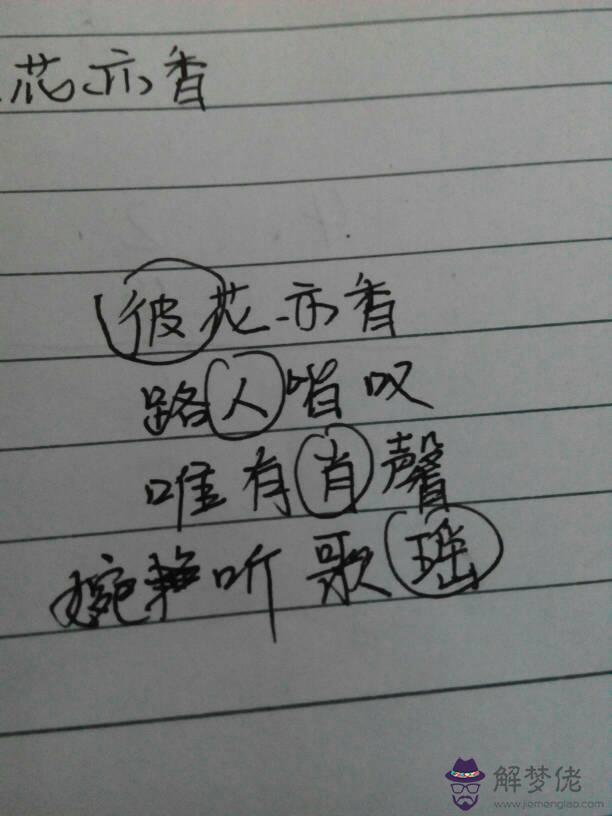 花亦香
彼花亦香
路人皆叹
唯有肖馨
婉 听歌瑶
解梦佬
www.jiemenglao.com